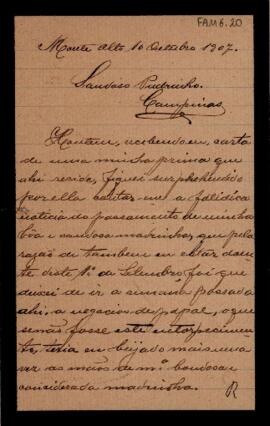 FAM 6.20
Monte Alto 10 Outubro 1907.
Saudoso Padrinho.
Campinas
Hontem, recebendo uma carta
de uma minha prima que
ahi reside, fiquei surprehendido
por ella contar-me a fatidica
noticia do passamento de minha
bôa e saudosa madrinha, que pela
razão de tambem eu estar doen-
te deste 1º de Setembro foi que
deixei de ir a semana passada
ahi, a negocios de , o que
se não fosse este entorpecimen-
to, teria eu beijado mais uma
vez as mãos de mª bondosa e
considerada madrinha.
R